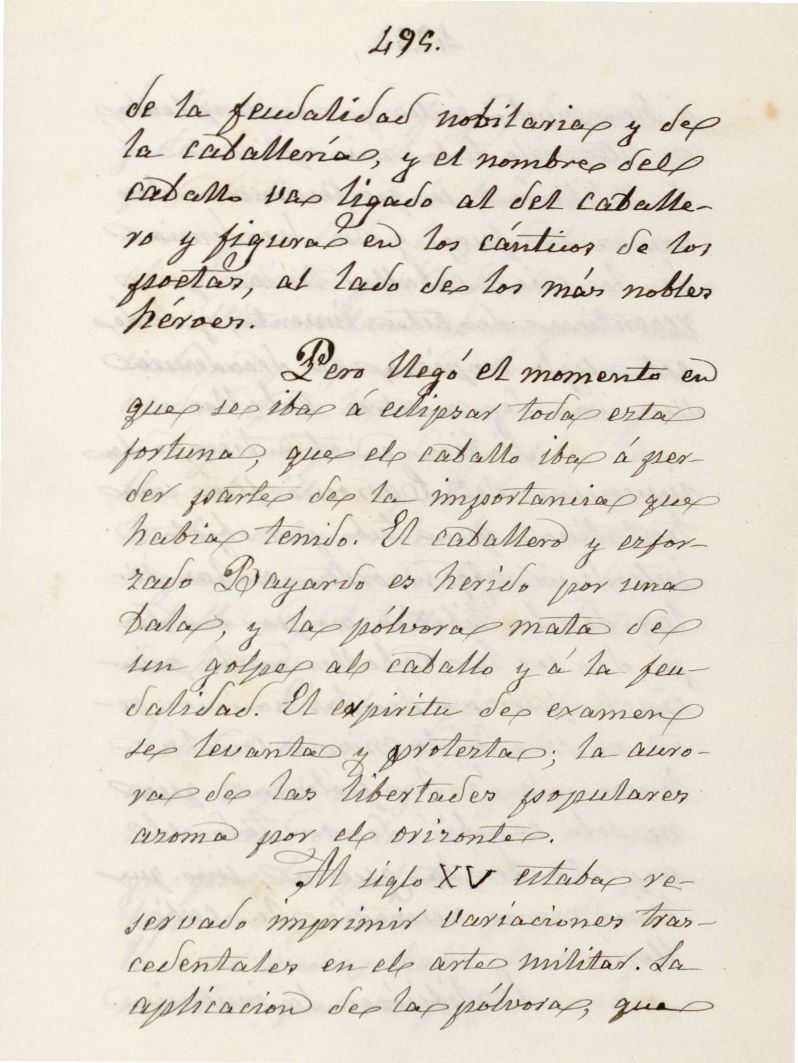 495.
de la feudalidad nobiliaria y de
la caballería, y el nombre del
caballo va ligado al del caballe-
ro y figura en los cánticos de los
poetas, al lado de los más nobles
héroes.
Pero llegó el momento en
que se iba á eclipsar toda esta
fortuna, que el caballo iba á per-
der parte de la importancia que
habia tenido. El caballero y esfor-
zado Bayardo es herido por una
bala, y la pólvora mata de
un golpe al caballo y á la feu-
dalidad. El expiritu de examen
se levanta y protesta; la auro-
ra de las libertades populares
asoma por el orizonte.
Al siglo XV estaba re-
servado imprimir variaciones tras-
cedentales en el arte militar. La
aplicacion de la pólvora, que